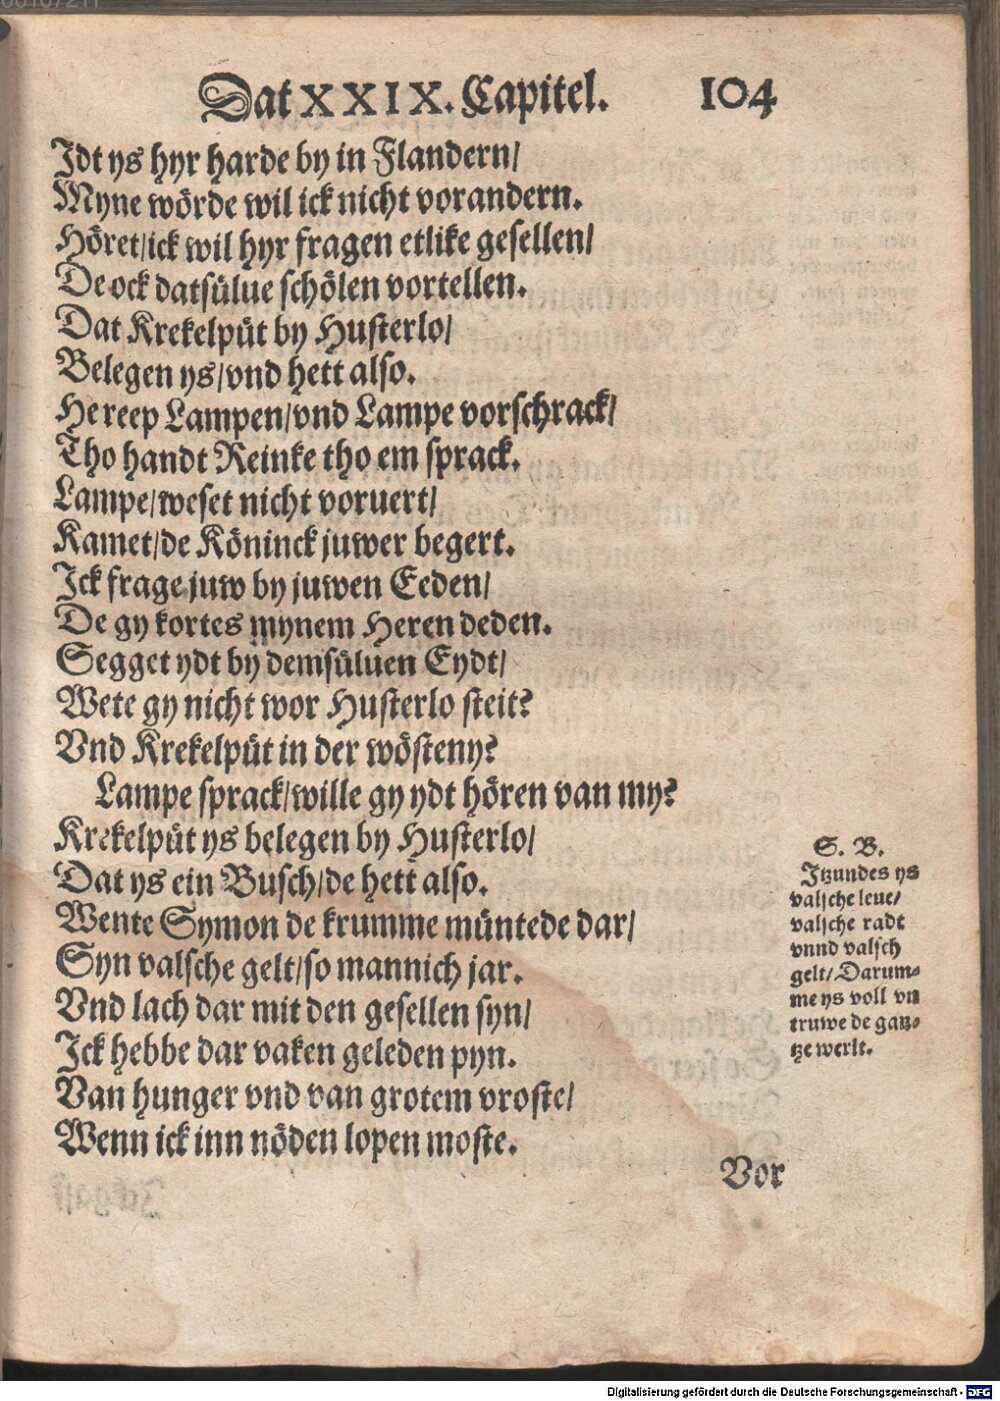 Dat XXIX. Capitel. 104
Idt ys hyr harde by in Flandern/
Myne wörde wil ick nicht vorandern.
Höret/ick wil hyr fragen etlike gesellen/
De ock datsülue schölen vortellen.
Dat Krekelpüt by Husterlo/
Belegen ys/vnd hett also.
He reep Lampen/vnd Lampe vorschrack/
Tho handt Reinke tho em sprack.
Lampe/weset nicht voruert/
Kamet/de Köninck juwer begert.
Ick frage juw by juwen Eeden/
De gy kortes mynem Heren deden.
Segget ydt by demsüluen Eydt/
Wete gy nicht wor Husterlo steit?
Vnd Krekelpüt in der wösteny?
Lampe sprack/wille gy ydt hören van my?
Krekelpüt ys belegen by Husterlo/
Dat ys ein Busch/de hett also.
Wente Symon de krumme müntede dar/
Syn valsche gelt/so mannich jar.
Vnd lach dar mit den gesellen syn/
Ick hebbe dar vaken geleden pyn.
Van hunger vnd van grotem vroste/
Wenn ick inn nöden lopen moste.
Vor
S. B.
Itzundes ys
valsche leue/
valsche radt
vnnd valsch
gelt/Darum-
me ys voll vn
truwe de gan-
tze werlt.
Digitalisierung gefördert durch die Deutsche Forschungsgemeinschaft - DFG